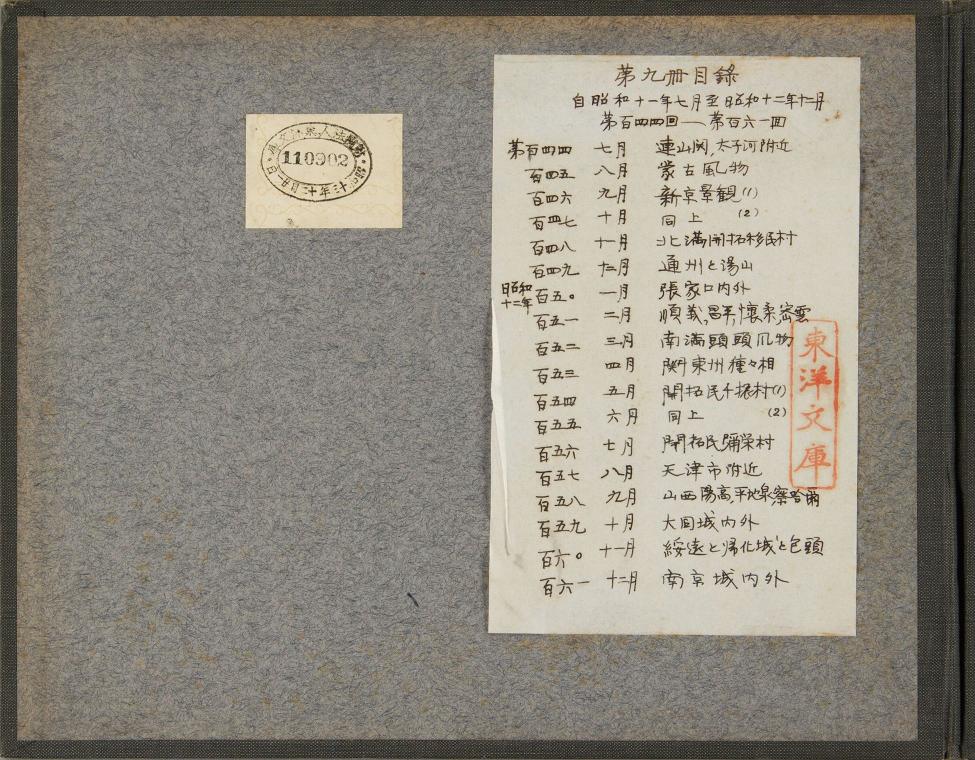 110902
第九冊目錄
自昭和十一年七月至昭和十二年十二月
第百四四回——第百六一回
第百四四 七月 連山関,太子河附近
百四五 八月 蒙古風物
百四六 九月 新京景観(1)
百四七 十月 同上 (2)
百四八 十一月 北満開拓移民村
百四九 十二月 通州と湯山
昭和十二年 百五〇 一月 張家口内外
百五一 二月 順義,昌平,懐柔,密雲
百五二 三月 南満 風物
百五三 四月 関東州種々相
百五四 五月 開拓民千振村(1)
百五五 六月 同上 (2)
百五六 七月 開拓民彌栄村
百五七 八月 天津市附近
百五八 九月 山西陽高,平地泉,察哈爾
百五九 十月 大同城内外
百六〇 十一月 綏遠と帰化城と包頭
百六一 十二月 南京城内外
東洋文庫